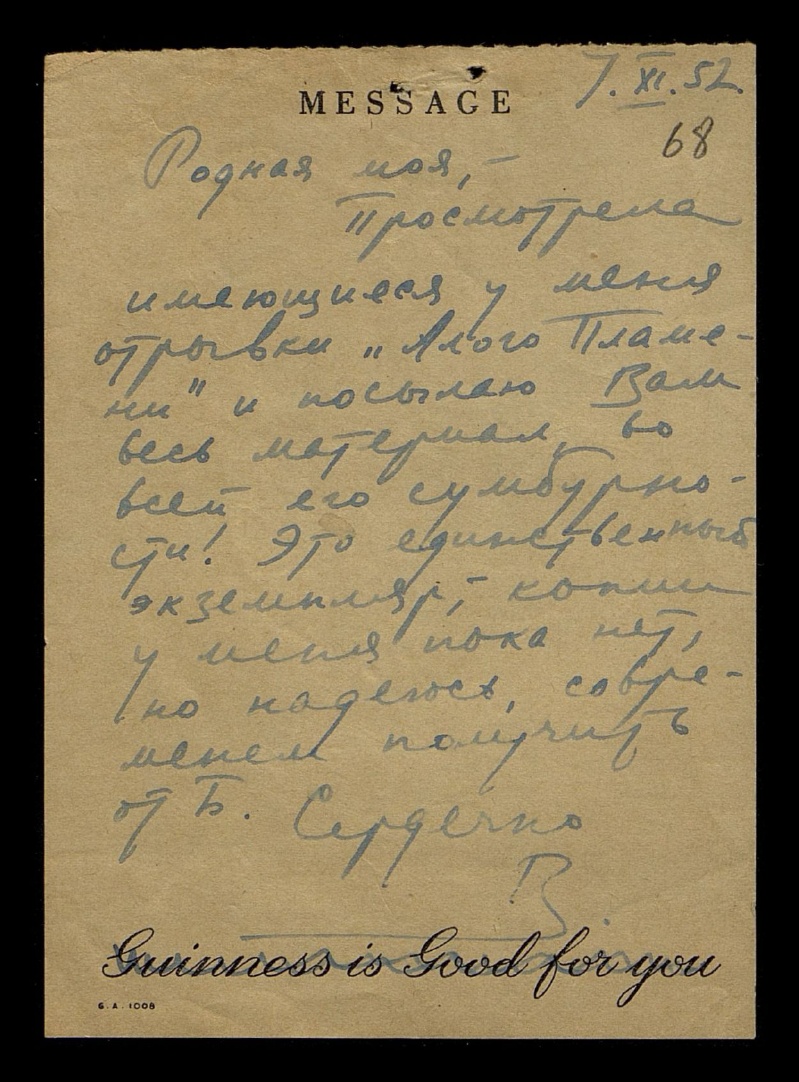 MESSAGE
7.XI.52.
68
Родная моя, –
Просмотрела
имеющиеся у меня
отрывки „Алого Пламе-
ни" и посылаю Вам
весь материал, во
всей его сумбурно-
сти! Это единственный
экземпляр, – копии
у меня пока нет,
но надеюсь, совре-
менем получить
от Б. Сердечно
В.
Guinness is Good for you
G.A. 1008